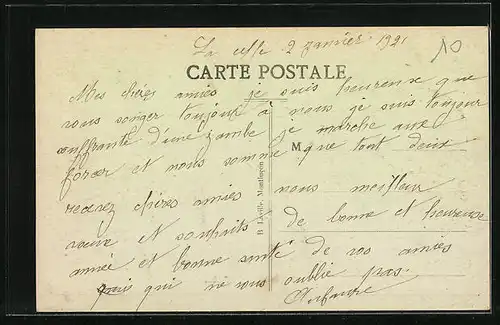 La celle 2 janvier 1921
10
CARTE POSTALE
Mes chères amies je suis heureuse que
vous songer toujour à nous je suis toujour
souffrante d'une jambe je marche aux
forcer et nous somme que tout deux
M
recevez chères amies nous meilleur
vœux et souhaits de bonne et heureuse
année et bonne santé de vos amies
qui ne vous oublie pas.
B Laville, Montluçon